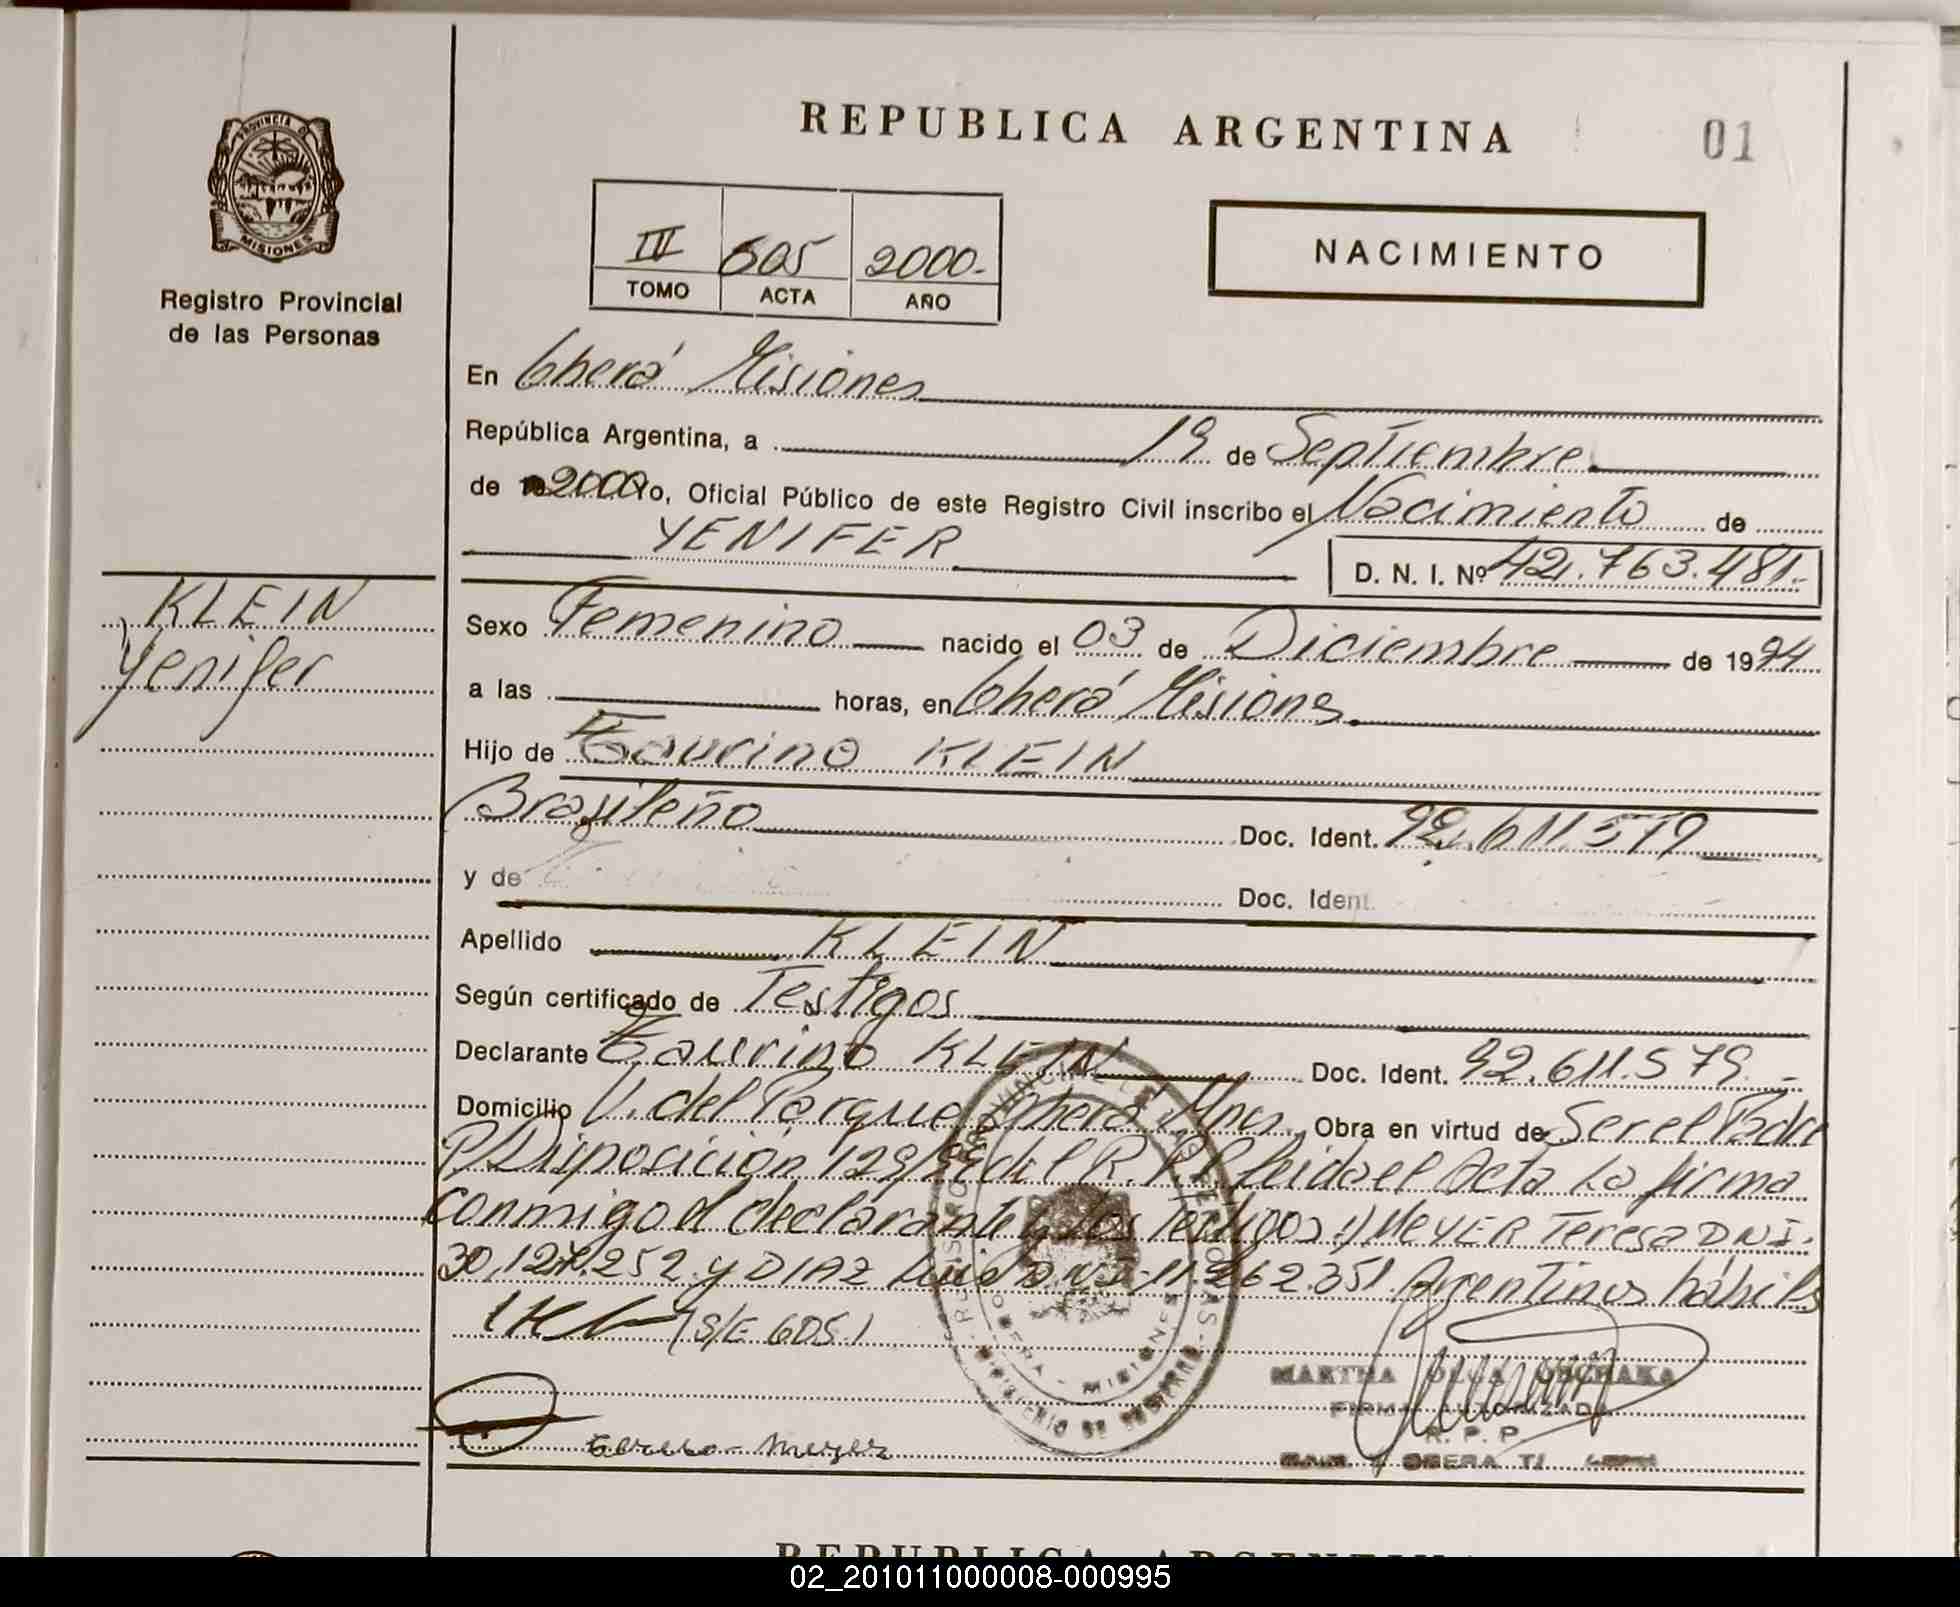 REPUBLICA ARGENTINA
01
PROVINCIA DE
MISIONES
Registro Provincial
de las Personas
III 605 2000.-
TOMO ACTA AÑO
NACIMIENTO
En Oberá Misiones
República Argentina, a 19 de Septiembre
de 2000 Yo, Oficial Público de este Registro Civil inscribo el Nacimiento de
YENIFER
D. N. I. Nº 42.763.481.-
KLEIN
Yenifer
Sexo Femenino nacido el 03 de Diciembre de 1994
a las horas, en Oberá Misiones
Hijo de Taurino KLEIN
Brasileño Doc. Ident. 92.611.579
y de Doc. Ident.
Apellido KLEIN
Según certificado de Testigos
Declarante Taurino KLEIN Doc. Ident. 92.611.579.-
Domicilio V. del Parque Oberá Mnes. Obra en virtud de Ser el Padre
P/Disposición 129/ del R.P.P. leida el Acta la firma
conmigo el declarante y los testigos 1) MEYER Teresa DNI.
30.127.252 y DIAZ Luis D.N.I. 11.262.351 Argentinos hábiles
(S/E 605)
MARTHA OLGA
FIRMA AUTORIZADA
R. P. P.
OBERA
REPUBLICA ARGENTINA
02_201011000008-000995